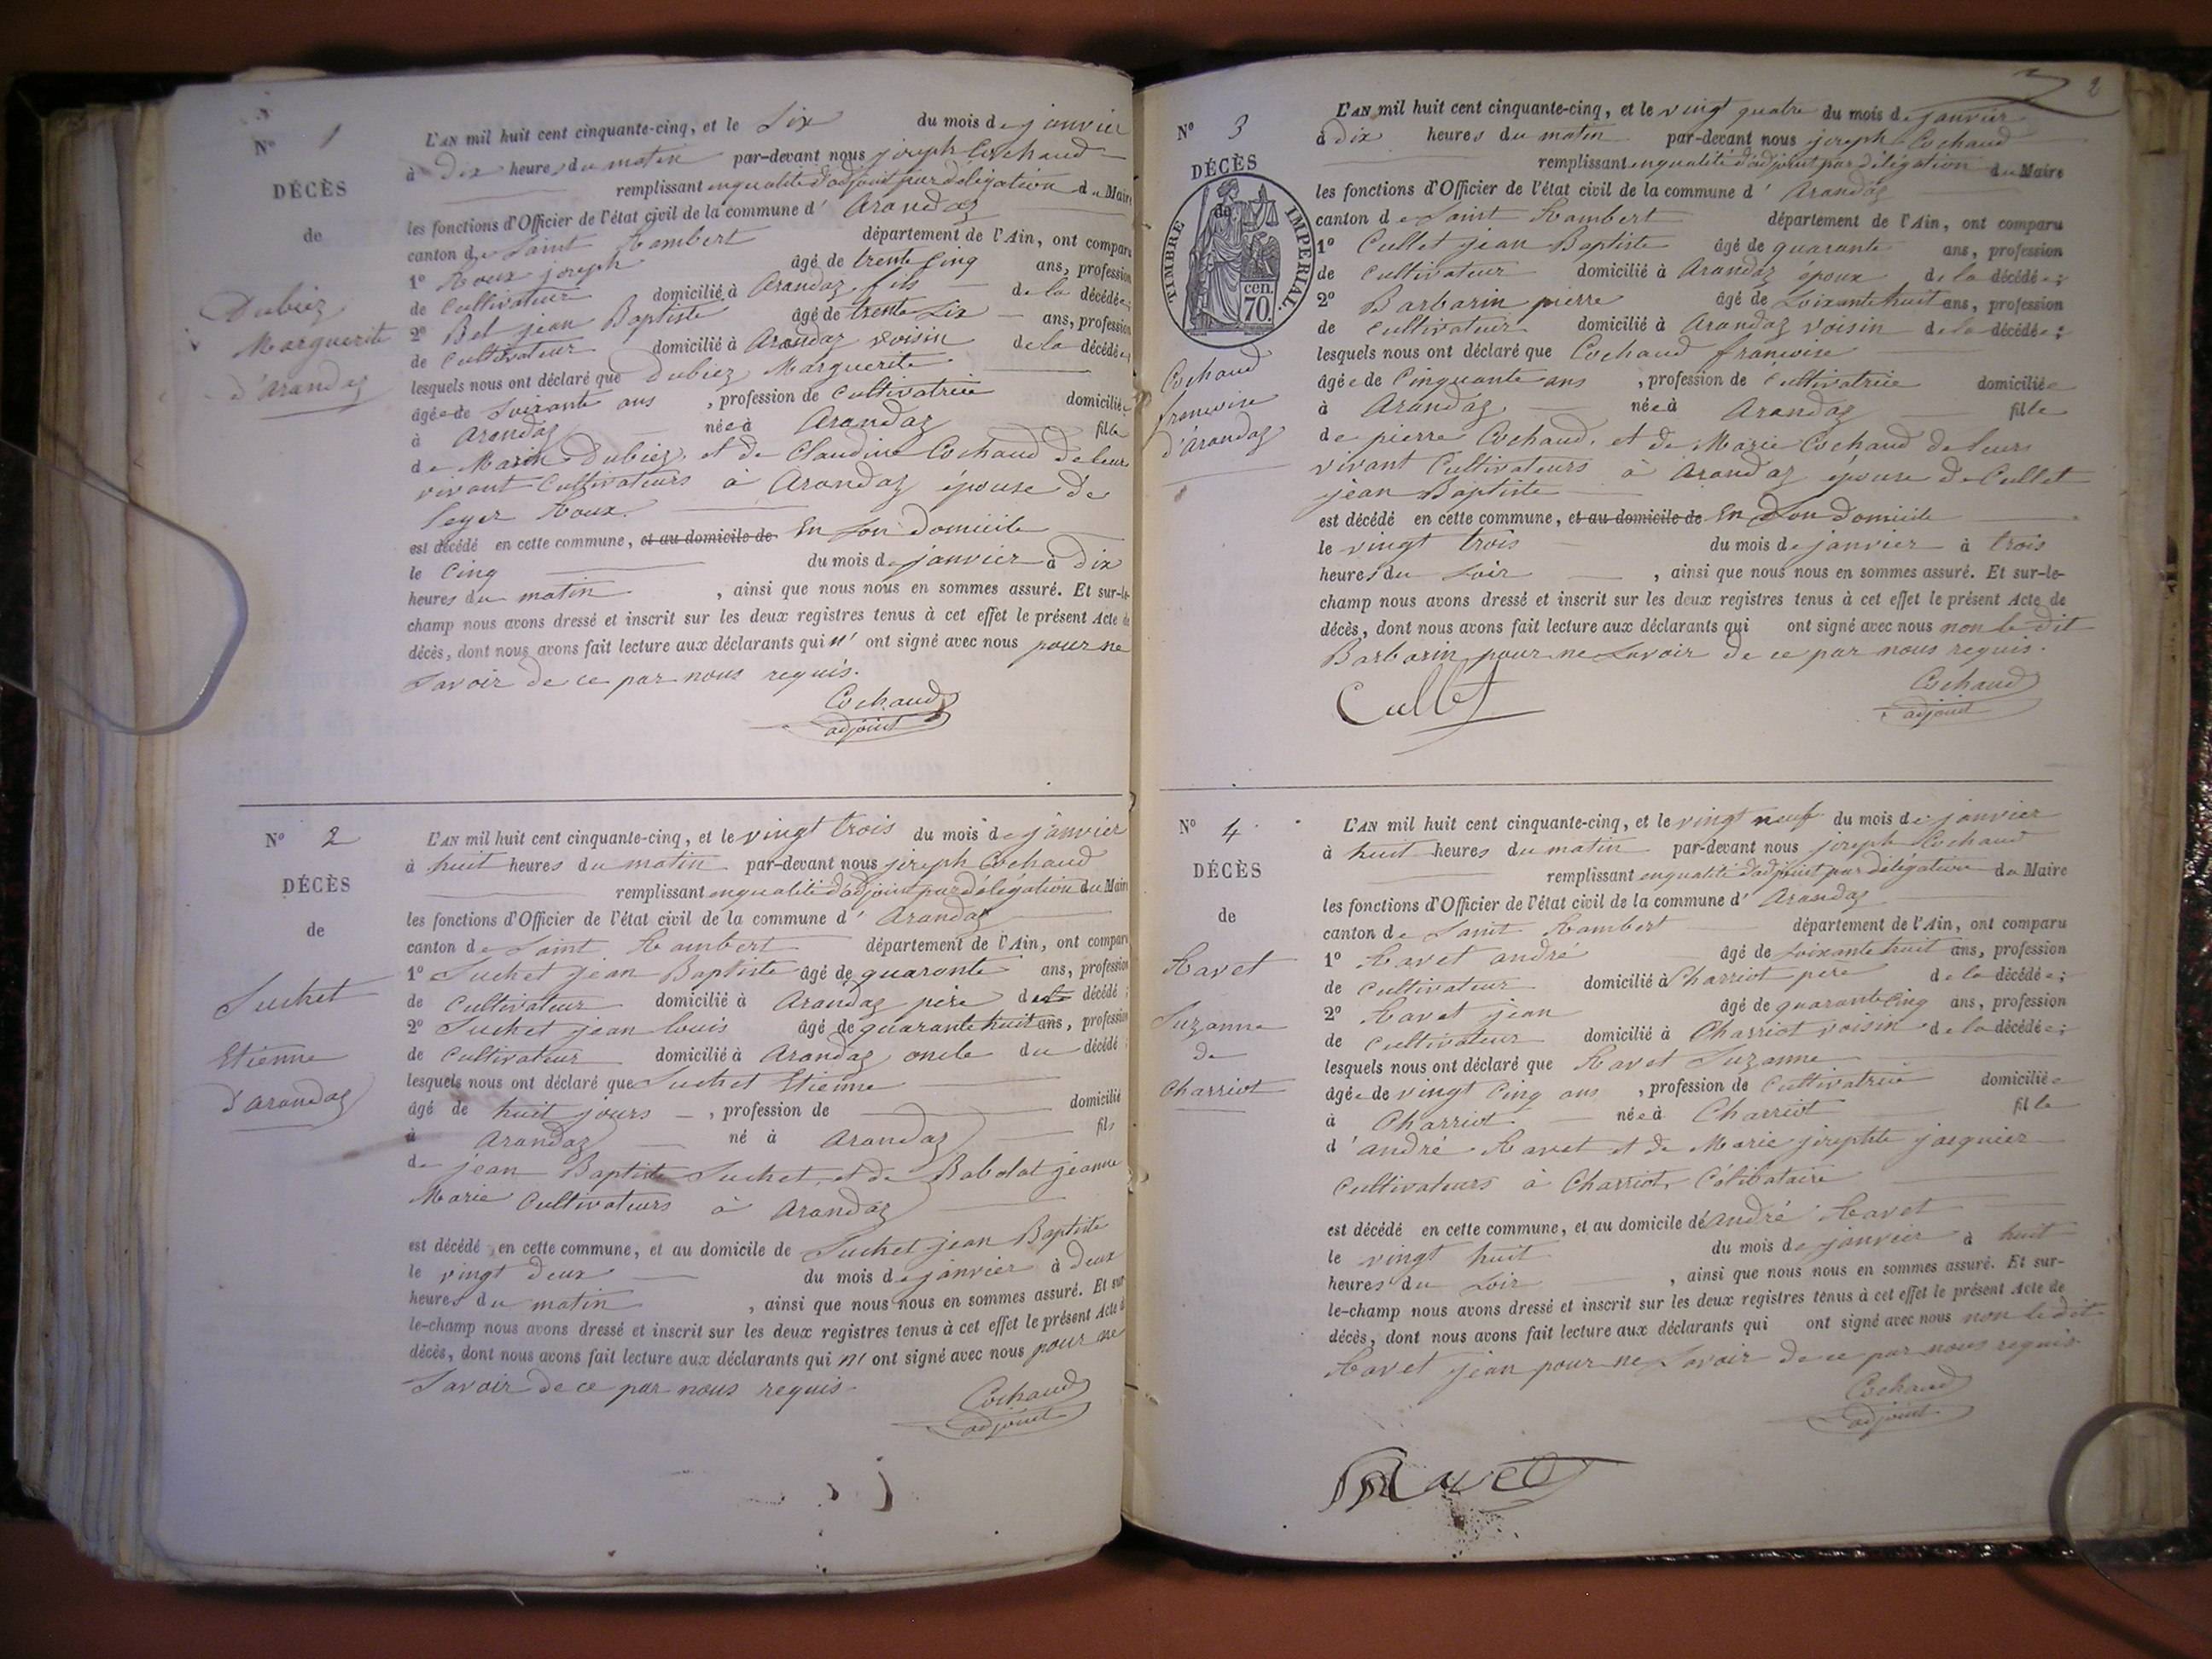 N° 1
DÉCÈS
de
Dubiez
Marguerite
d'arandaz
L'AN mil huit cent cinquante-cinq, et le Six du mois de janvier
à Dix heures du matin par-devant nous joseph Cochaud
remplissant en qualité d'adjoint par délégation du Maire
les fonctions d'Officier de l'état civil de la commune d' Arandaz
canton de Saint Rambert département de l'Ain, ont comparu
1° Roux joseph âgé de trente Cinq ans, profession
de Cultivateur domicilié à Arandaz fils de la décédée;
2° Bel jean Baptiste âgé de trente Six ans, profession
de Cultivateur domicilié à Arandaz voisin de la décédée;
lesquels nous ont déclaré que Dubiez Marguerite
âgée de Soixante ans , profession de Cultivatrice domiciliée
à Arandaz née à Arandaz fille
de Marin Dubiez et de Claudine Cochaud de leur
vivant Cultivateurs à Arandaz épouse de
Leger Roux.
est décédé en cette commune, et au domicile de En Son Domicile
le Cinq du mois de janvier à Dix
heures du matin , ainsi que nous nous en sommes assuré. Et sur-le-
champ nous avons dressé et inscrit sur les deux registres tenus à cet effet le présent Acte de
décès, dont nous avons fait lecture aux déclarants qui n' ont signé avec nous pour ne
Savoir de ce par nous requis.
Cochaud
adjoint
N° 2
DÉCÈS
de
Suchet
Etienne
d'arandaz
L'AN mil huit cent cinquante-cinq, et le vingt trois du mois de janvier
à huit heures du matin par-devant nous joseph Cochaud
remplissant en qualité d'adjoint par délégation du Maire
les fonctions d'Officier de l'état civil de la commune d' Arandaz
canton de Saint Rambert département de l'Ain, ont comparu
1° Suchet jean Baptiste âgé de quarante ans, profession
de Cultivateur domicilié à Arandaz père du décédé;
2° Suchet jean louis âgé de quarante huit ans, profession
de Cultivateur domicilié à Arandaz oncle du décédé;
lesquels nous ont déclaré que Suchet Etienne
âgé de huit jours , profession de domicilié
à Arandaz né à Arandaz fils
de jean Baptiste Suchet, et de Babolat jeanne
Marie Cultivateurs à Arandaz
est décédé en cette commune, et au domicile de Suchet jean Baptiste
le vingt deux du mois de janvier à Deux
heures du matin , ainsi que nous nous en sommes assuré. Et sur
le-champ nous avons dressé et inscrit sur les deux registres tenus à cet effet le présent Acte de
décès, dont nous avons fait lecture aux déclarants qui n' ont signé avec nous pour ne
Savoir de ce par nous requis.
Cochaud
adjoint
2
N° 3
DÉCÈS
de
TIMBRE IMPERIAL.
70 cen.
Cochaud
francoise
d'Arandaz
L'AN mil huit cent cinquante-cinq, et le vingt quatre du mois de janvier
à Dix heures du matin par-devant nous joseph Cochaud
remplissant en qualité d'adjoint par délégation du Maire
les fonctions d'Officier de l'état civil de la commune d' Arandaz
canton de Saint Rambert département de l'Ain, ont comparu
1° Cullet jean Baptiste âgé de quarante ans, profession
de Cultivateur domicilié à Arandaz époux de la décédée;
2° Barbarin pierre âgé de Soixante huit ans, profession
de Cultivateur domicilié à Arandaz voisin de la décédée;
lesquels nous ont déclaré que Cochaud francoise
âgée de Cinquante ans , profession de Cultivatrice domiciliée
à Arandaz née à Arandaz fille
de pierre Cochaud, et de Marie Cochaud de leur
vivant Cultivateurs à Arandaz épouse de Cullet
jean Baptiste
est décédé en cette commune, et au domicile de En Son Domicile
le vingt trois du mois de janvier à trois
heures du Soir , ainsi que nous nous en sommes assuré. Et sur-le-
champ nous avons dressé et inscrit sur les deux registres tenus à cet effet le présent Acte de
décès, dont nous avons fait lecture aux déclarants qui ont signé avec nous non le dit
Barbarin pour ne Savoir de ce par nous requis.
Cullet
Cochaud
adjoint
N° 4
DÉCÈS
de
Ravet
Suzanne
de
Charriot
L'AN mil huit cent cinquante-cinq, et le vingt neuf du mois de janvier
à huit heures du matin par-devant nous joseph Cochaud
remplissant en qualité d'adjoint par délégation du Maire
les fonctions d'Officier de l'état civil de la commune d' Arandaz
canton de Saint Rambert département de l'Ain, ont comparu
1° Ravet andré âgé de Soixante huit ans, profession
de Cultivateur domicilié à Charriot père de la décédée;
2° Ravet jean âgé de quarante Cinq ans, profession
de Cultivateur domicilié à Charriot voisin de la décédée;
lesquels nous ont déclaré que Ravet Suzanne
âgée de vingt Cinq ans , profession de Cultivatrice domiciliée
à Charriot née à Charriot fille
d'andré Ravet et de Marie josephte jacquier
Cultivateurs à Charriot, Célibataire
est décédé en cette commune, et au domicile de André Ravet
le vingt huit du mois de janvier à huit
heures du Soir , ainsi que nous nous en sommes assuré. Et sur-
le-champ nous avons dressé et inscrit sur les deux registres tenus à cet effet le présent Acte de
décès, dont nous avons fait lecture aux déclarants qui ont signé avec nous non le dit
Ravet jean pour ne Savoir de ce par nous requis.
Cochaud
adjoint
Ravet